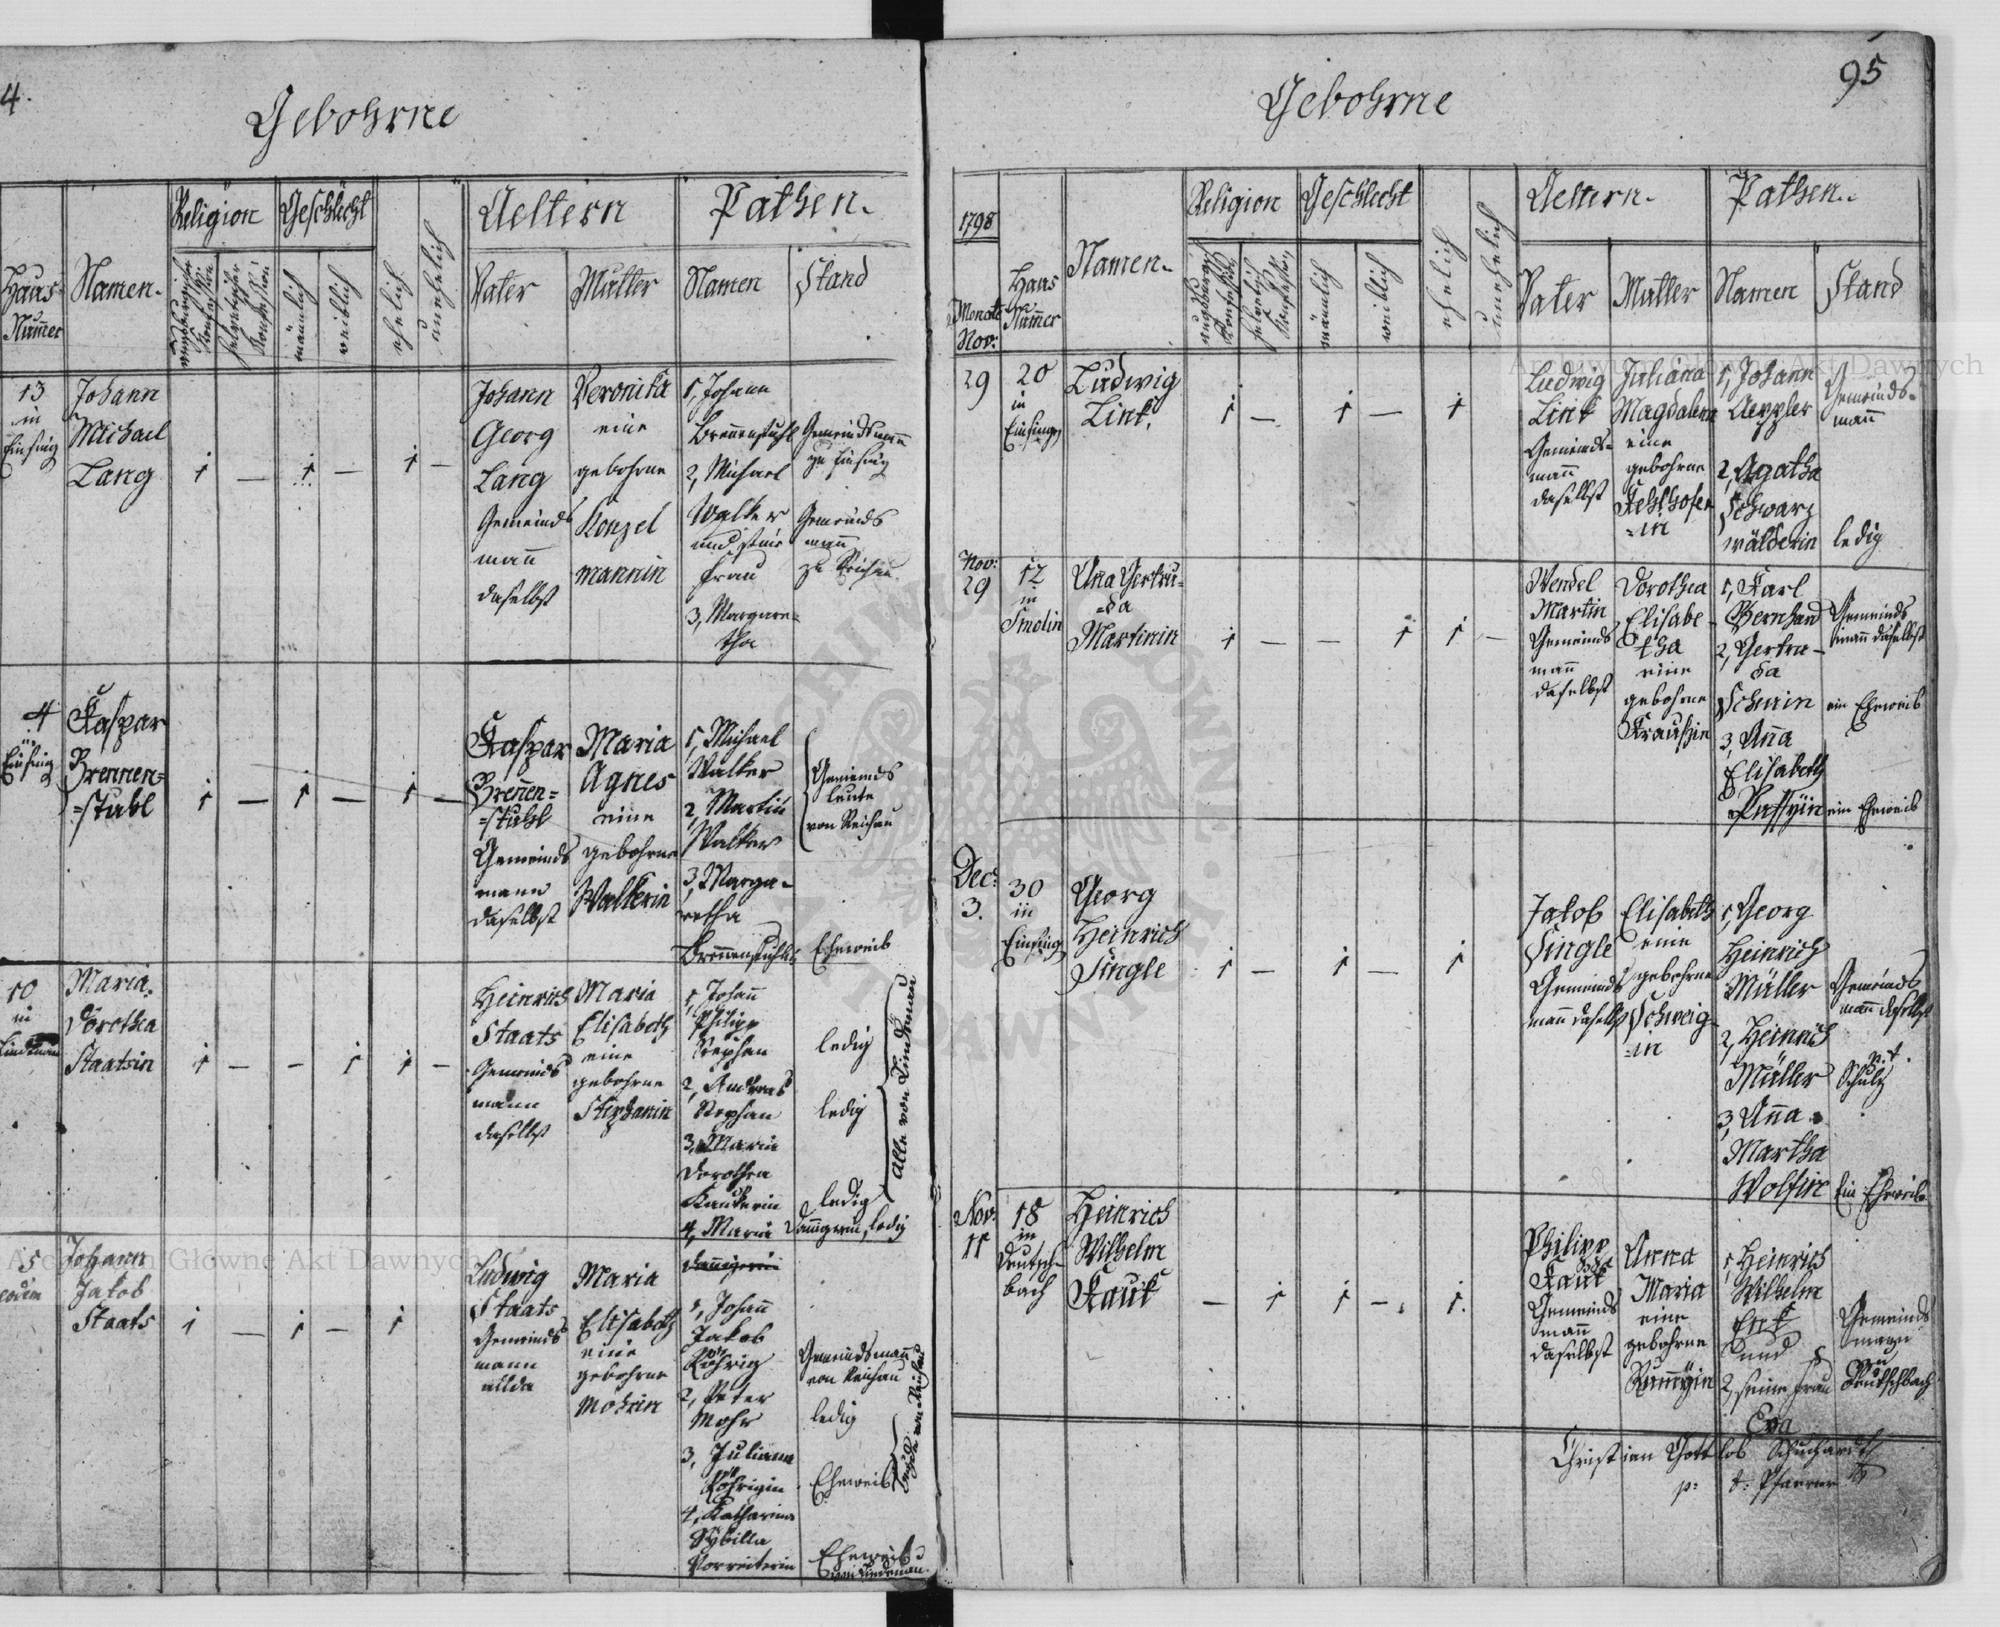 4.
Gebohrne
Haus-
Numer
Namen.
Religion
Geschlecht
männlich
weiblich
ehelich
unehelich
Aeltern
Vater
Mutter
Pathen.
Namen
Stand
13
in
Einsing
Johann
Michael
Lang
1 — 1 — 1 —
Johann
Georg
Lang
Gemeinds
mann
daselbst
Veronika
eine
gebohrne
Konzel
mannin
1, Johann
Brennenstuhl
2, Michael
Walker
und seine
Frau
3, Margare=
tha
Gemeindsmann
zu Einsing
Gemeinds
mann
zu Reichau
4
Einsing
Kaspar
Brennen=
=stuhl
1 — 1 — 1 —
Kaspar
Brenen=
=stuhl
Gemeinds
mann
daselbst
Maria
Agnes
eine
gebohrne
Walkerin
1, Michael
Walker
2, Martin
Walker
3, Marga-
retha
Brennenstuhl
Gemeinds
leute
von Reichau
Eheweib
10
in
Lindenau
Maria
Dorothea
Staatsin
1 — — 1 1 —
Heinrich
Staats
Gemeinds
mann
daselbst
Maria
Elisabeth
eine
gebohrne
Stephanin
1, Johann
Philipp
Stephan
2, Andreas
Stephan
3, Maria
Dorothea
Kauterin
4, Maria
ledig
ledig
ledig
ledig
alle von Lindenau
5
eodem
Johann
Jakob
Staats
1 — 1 — 1
Ludwig
Staats
Gemeinds
mann
allda
Maria
Elisabeth
eine
gebohrne
Mohrin
1, Johann
Jakob
Röhrig
2, Peter
Mohr
3, Juliana
Röhrigin
4, Katharina
Sybilla
Vorreiterin
Gemeindsmann
von Reichau
ledig
Eheweib
Eheweib
von Lindenau.
95
Gebohrne
1798
Monat
Nov:
Haus
Numer
Namen.
Religion
Geschlecht
männlich
weiblich
ehelich
unehelich
Aeltern.
Vater
Mutter
Pathen.
Namen
Stand
29
20
in
Einsing
Ludwig
Link
1 — 1 — 1
Ludwig
Link
Gemeinds-
mann
daselbst
Juliana
Magdalena
eine
gebohrne
-in
1, Johann
Aeppler
2, Agatha
Schwarz
wälderin
Gemeinds-
mann
ledig
Nov:
29
12
in
Smolin
Ana Gertru-
=da
Martinin
1 — — 1 1 —
Wendel
Martin
Gemeinds
mann
daselbst
Dorothea
Elisabe-
tha
eine
gebohrne
Kraushin
1, Karl
Bernhard
2, Gertru-
da
3, Ana
Elisabeth
Gemeinds
mann daselbst
ein Eheweib
ein Eheweib
Dec:
3.
30
in
Einsing
Georg
Heinrich
Single
1 — 1 — 1
Jakob
Single
Gemeinds
mann daselbst
Elisabeth
eine
gebohrne
Schweig-
-in
1, Georg
Heinrich
Müller
2, Heinrich
Müller
3, Anna
Martha
Wolfin
Gemeinds
mann daselbst
p. t.
Schulz
Ein Eheweib
Nov:
11
18
in
Deutsch-
bach
Heinrich
Wilhelm
Kauk
— 1 1 — 1.
Philipp
Kauk
Gemeinds
mann
daselbst
Anna
Maria
eine
gebohrne
1, Heinrich
Wilhelm
und
2, seine Frau
Eva
Gemeinds
mann
zu
Deutschbach
Christian Gottlob Schuchardt
p: t: Pfarrer
Archiwum Główne Akt Dawnych
Archiwum Główne Akt Dawnych